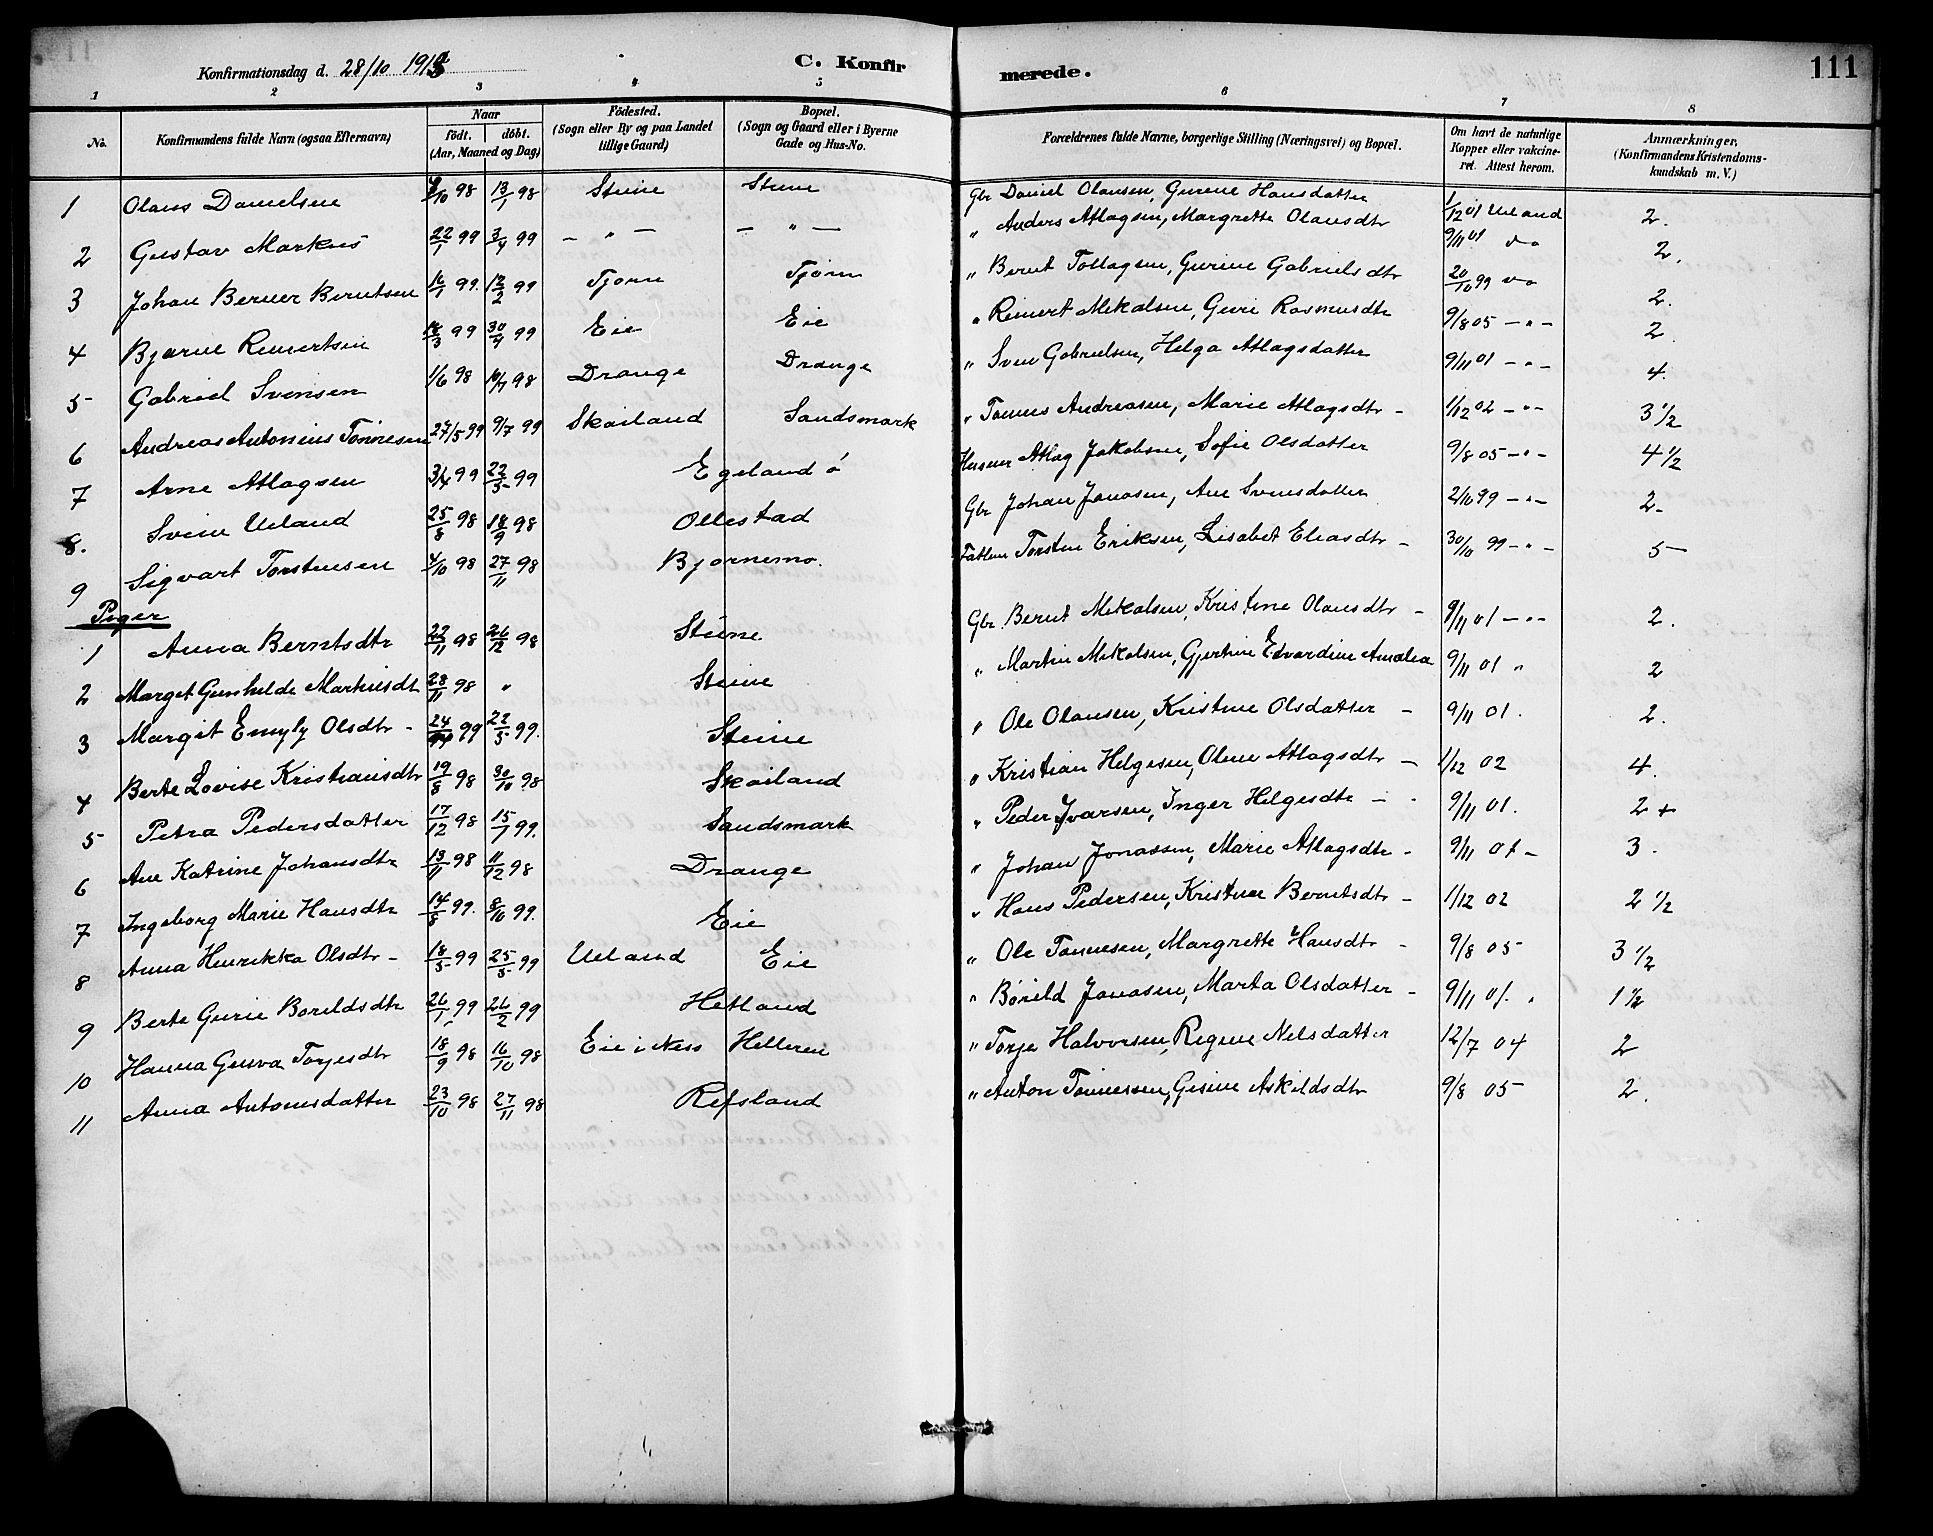 Konfirmationsdag d. 28/10 1913 C. Konfirmerede. 111
1 2 3 4 5 6 7 8
No. Konfirmandens fulde Navn (ogsaa Efternavn) Naar født. døbt. (Aar, Maaned og Dag) Födested. (Sogn eller By og paa Landet tillige Gaard) Bopæl. (Sogn og Gaard eller i Byerne Gade og Hus-No. Forældrenes fulde Navne, borgerlige Stilling (Næringsvei) og Bopæl. Om havt de naturlige Kopper eller vakcineret. Attest herom. Anmærkninger, (Konfirmandens Kristendomskundskab m. V.)
1 Olaus Danielsen /10 98 13/1 98 Steine Steine Gbr Daniel Olausen, Gurine Hansdatter 1/12 01 Ueland 2.
2 Gustav Markus 22/1 99 3/4 99 - " - - " - " Anders Atlagsen, Margrette Olausdtr 9/11 01 do 2.
3 Johan Berner Berntsen 16/1 99. 12/2 99 Tjørn Tjørn " Bernt Tollagsen, Gurine Gabrielsdtr 20/10 99 do 2.
4 Bjarne Reinertsen 18/3 99 30/4 99 Eie Eie " Reinert Mikalsen, Guri Rasmusdtr 9/8 05 - " - 2.
5 Gabriel Svensen 1/6 98 10/7 98 Drange Drange " Sven Gabrielsen, Helga Atlagsdatter 9/11 01 - " - 4.
6 Andreas Antonius Tønnesen 27/5 99 9/7 99 Skailand Sandsmark " Tønnes Andreasen, Marie Atlagsdtr - 1/12 02 - " - 3 1/2
7 Arne Atlagsen 3/4 99 22/5 99 Egeland ø Husmr Atlag Jakobsen, Sofie Olsdatter 9/8 05 - " - 4 1/2
8. Svein Ueland 25/8 98 18/9 98 Ollestad Gbr Johan Jonasen, Ane Svensdatter 2/10 99 - " - 2.
9 Sigvart Torstensen 4/10 98 27/11 98 Bjørnemo. Fattem Torsten Eriksen, Lisabet Eliasdtr - 30/10 99 - " - 5
Piger
1 Anna Berntsdtr 22/11 98 26/12 98 Steine Gbr. Bernt Mikalsen, Kristine Olausdtr - 9/11 01 - " - 2.
2 Marget Gunhilde Martinsdtr 28/11 98 " Steine " Martin Mikalsen, Gjertine Edvardine Amalia 9/11 01 " 2
3 Margit Emyly Olsdtr - 24/ 99 22/5 99. Steine " Ole Olausen, Kristine Olsdatter - 9/11 01. 2.
4 Berte Lovise Kristiansdtr 19/8 98 30/10 98 Skailand " Kristian Helgesen, Oline Atlagsdtr - 1/12 02 4.
5 Petra Pedersdatter 17/12 98 15/1 99. Sandsmark " Peder Ivarsen, Inger Helgesdtr - 9/11 01. 2 +
6 Ane Katrine Johansdtr 13/11 98 11/12 98 Drange " Johan Jonassen, Marie Atlagsdtr - 9/11 01 - 3.
7 Ingeborg Marie Hansdtr 14/8 99. 8/10 99. Eie " Hans Pedersen, Kristine Berntsdtr - 1/12 02 2 1/2
8 Anna Henrikka Olsdtr - 18/5 99 25/5 99 Ueland Eie " Ole Tønnesen, Margrette Hansdtr - 9/8 05 3 1/2
9 Berte Gurie Børildsdtr 26/1 99 26/2 99 Hetland " Børild Jonasen, Marta Olsdatter - 9/11 01. " 1 1/2
10 Hanna Gusva Torjesdtr 18/9 98 16/10 98 Eie i Ness Helleren " Torje Halvorsen, Regine Nilsdatter 12/7 04 2
11 Anna Antonsdatter 23/10 98 27/11 98 Refsland " Anton Tønnessen, Gesine Askildsdtr 9/8 05 2.